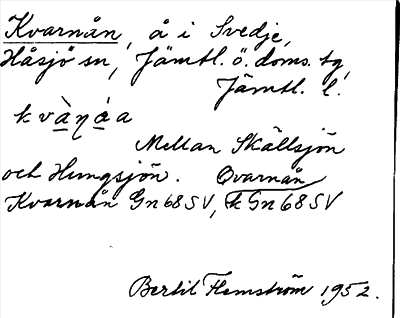 Kvarnån, å i Svedje,
Håsjö sn, Jämtl. ö. doms. tg,
Jämtl. l.
kvà̱ŋá̱a
Mellan Skällsjön
och Hungsjön. Qvarnån
Kvarnån Gn 68 SV, k Gn 68 SV
Bertil Flemström 1952.